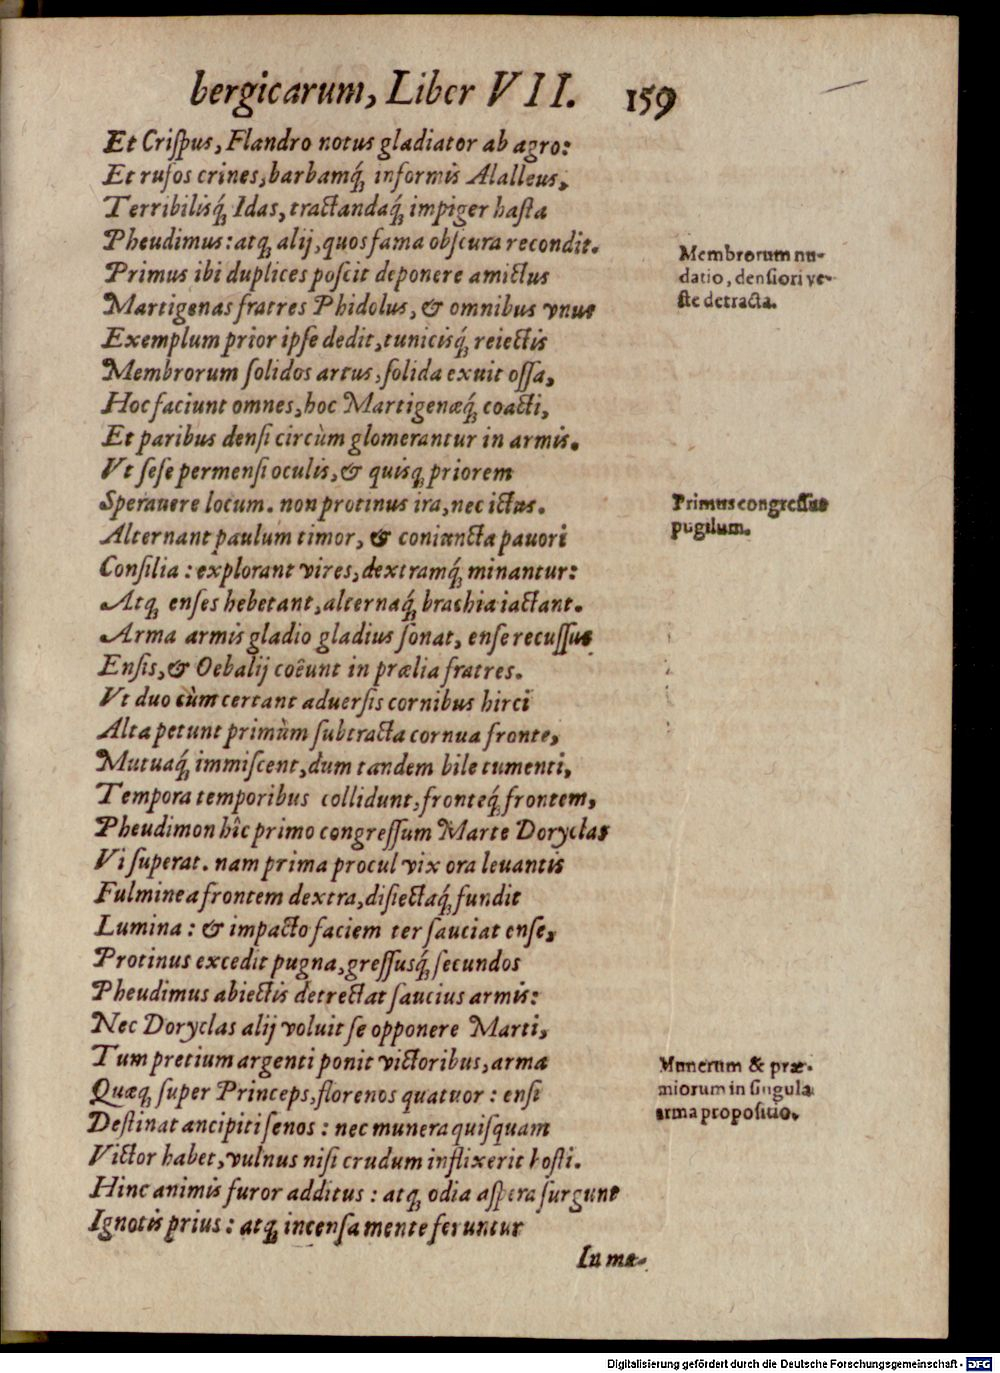 bergicarum, Liber VII. 159
Et Criſpus, Flandro notus gladiator ab agro:
Et rufos crines, barbamq́; informis Alalleus,
Terribilisq́; Idas, tractandaq́; impiger haſta
Pheudimus: atq; alij, quos fama obſcura recondit.
Primus ibi duplices poſcit deponere amictus
Martigenas fratres Phidolus, & omnibus vnus
Exemplum prior ipſe dedit, tunicisq́; reiectis
Membrorum ſolidos artus, ſolida exuit oſſa,
Hoc faciunt omnes, hoc Martigenæq́; coacti,
Et paribus denſi circùm glomerantur in armis.
Vt ſeſe permenſi oculis, & quisq; priorem
Sperauere locum. non protinus ira, nec ictus.
Alternant paulum timor, & coniuncta pauori
Conſilia: explorant vires, dextramq́; minantur:
Atq; enſes hebetant, alternaq́; brachia iactant.
Arma armis gladio gladius ſonat, enſe recuſſus
Enſis, & Oebalij coêunt in prælia fratres.
Vt duo cùm certant aduerſis cornibus hirci
Alta petunt primùm ſubtracta cornua fronte,
Mutuaq́; immiſcent, dum tandem bile tumenti,
Tempora temporibus collidunt, fronteq́; frontem,
Pheudimon hîc primo congreſſum Marte Doryclas
Vi ſuperat. nam prima procul vix ora leuantis
Fulminea frontem dextra, diſiectaq́; fundit
Lumina: & impacto faciem ter ſauciat enſe,
Protinus excedit pugna, greſſusq́; ſecundos
Pheudimus abiectis detrectat ſaucius armis:
Nec Doryclas alij voluit ſe opponere Marti,
Tum pretium argenti ponit victoribus, arma
Quæq; ſuper Princeps, florenos quatuor: enſi
Deſtinat ancipiti ſenos: nec munera quiſquam
Victor habet, vulnus niſi crudum inflixerit hoſti.
Hinc animis furor additus: atq; odia aſpera ſurgunt
Ignotis prius: atq; incenſa mente feruntur
In me-
Membrorum nu-
datio, denſiori ve-
ſte detracta.
Primus congreſſus
pugilum.
Munerum & præ-
miorum in ſingula
arma propoſitio.
Digitalisierung gefördert durch die Deutsche Forschungsgemeinschaft - DFG